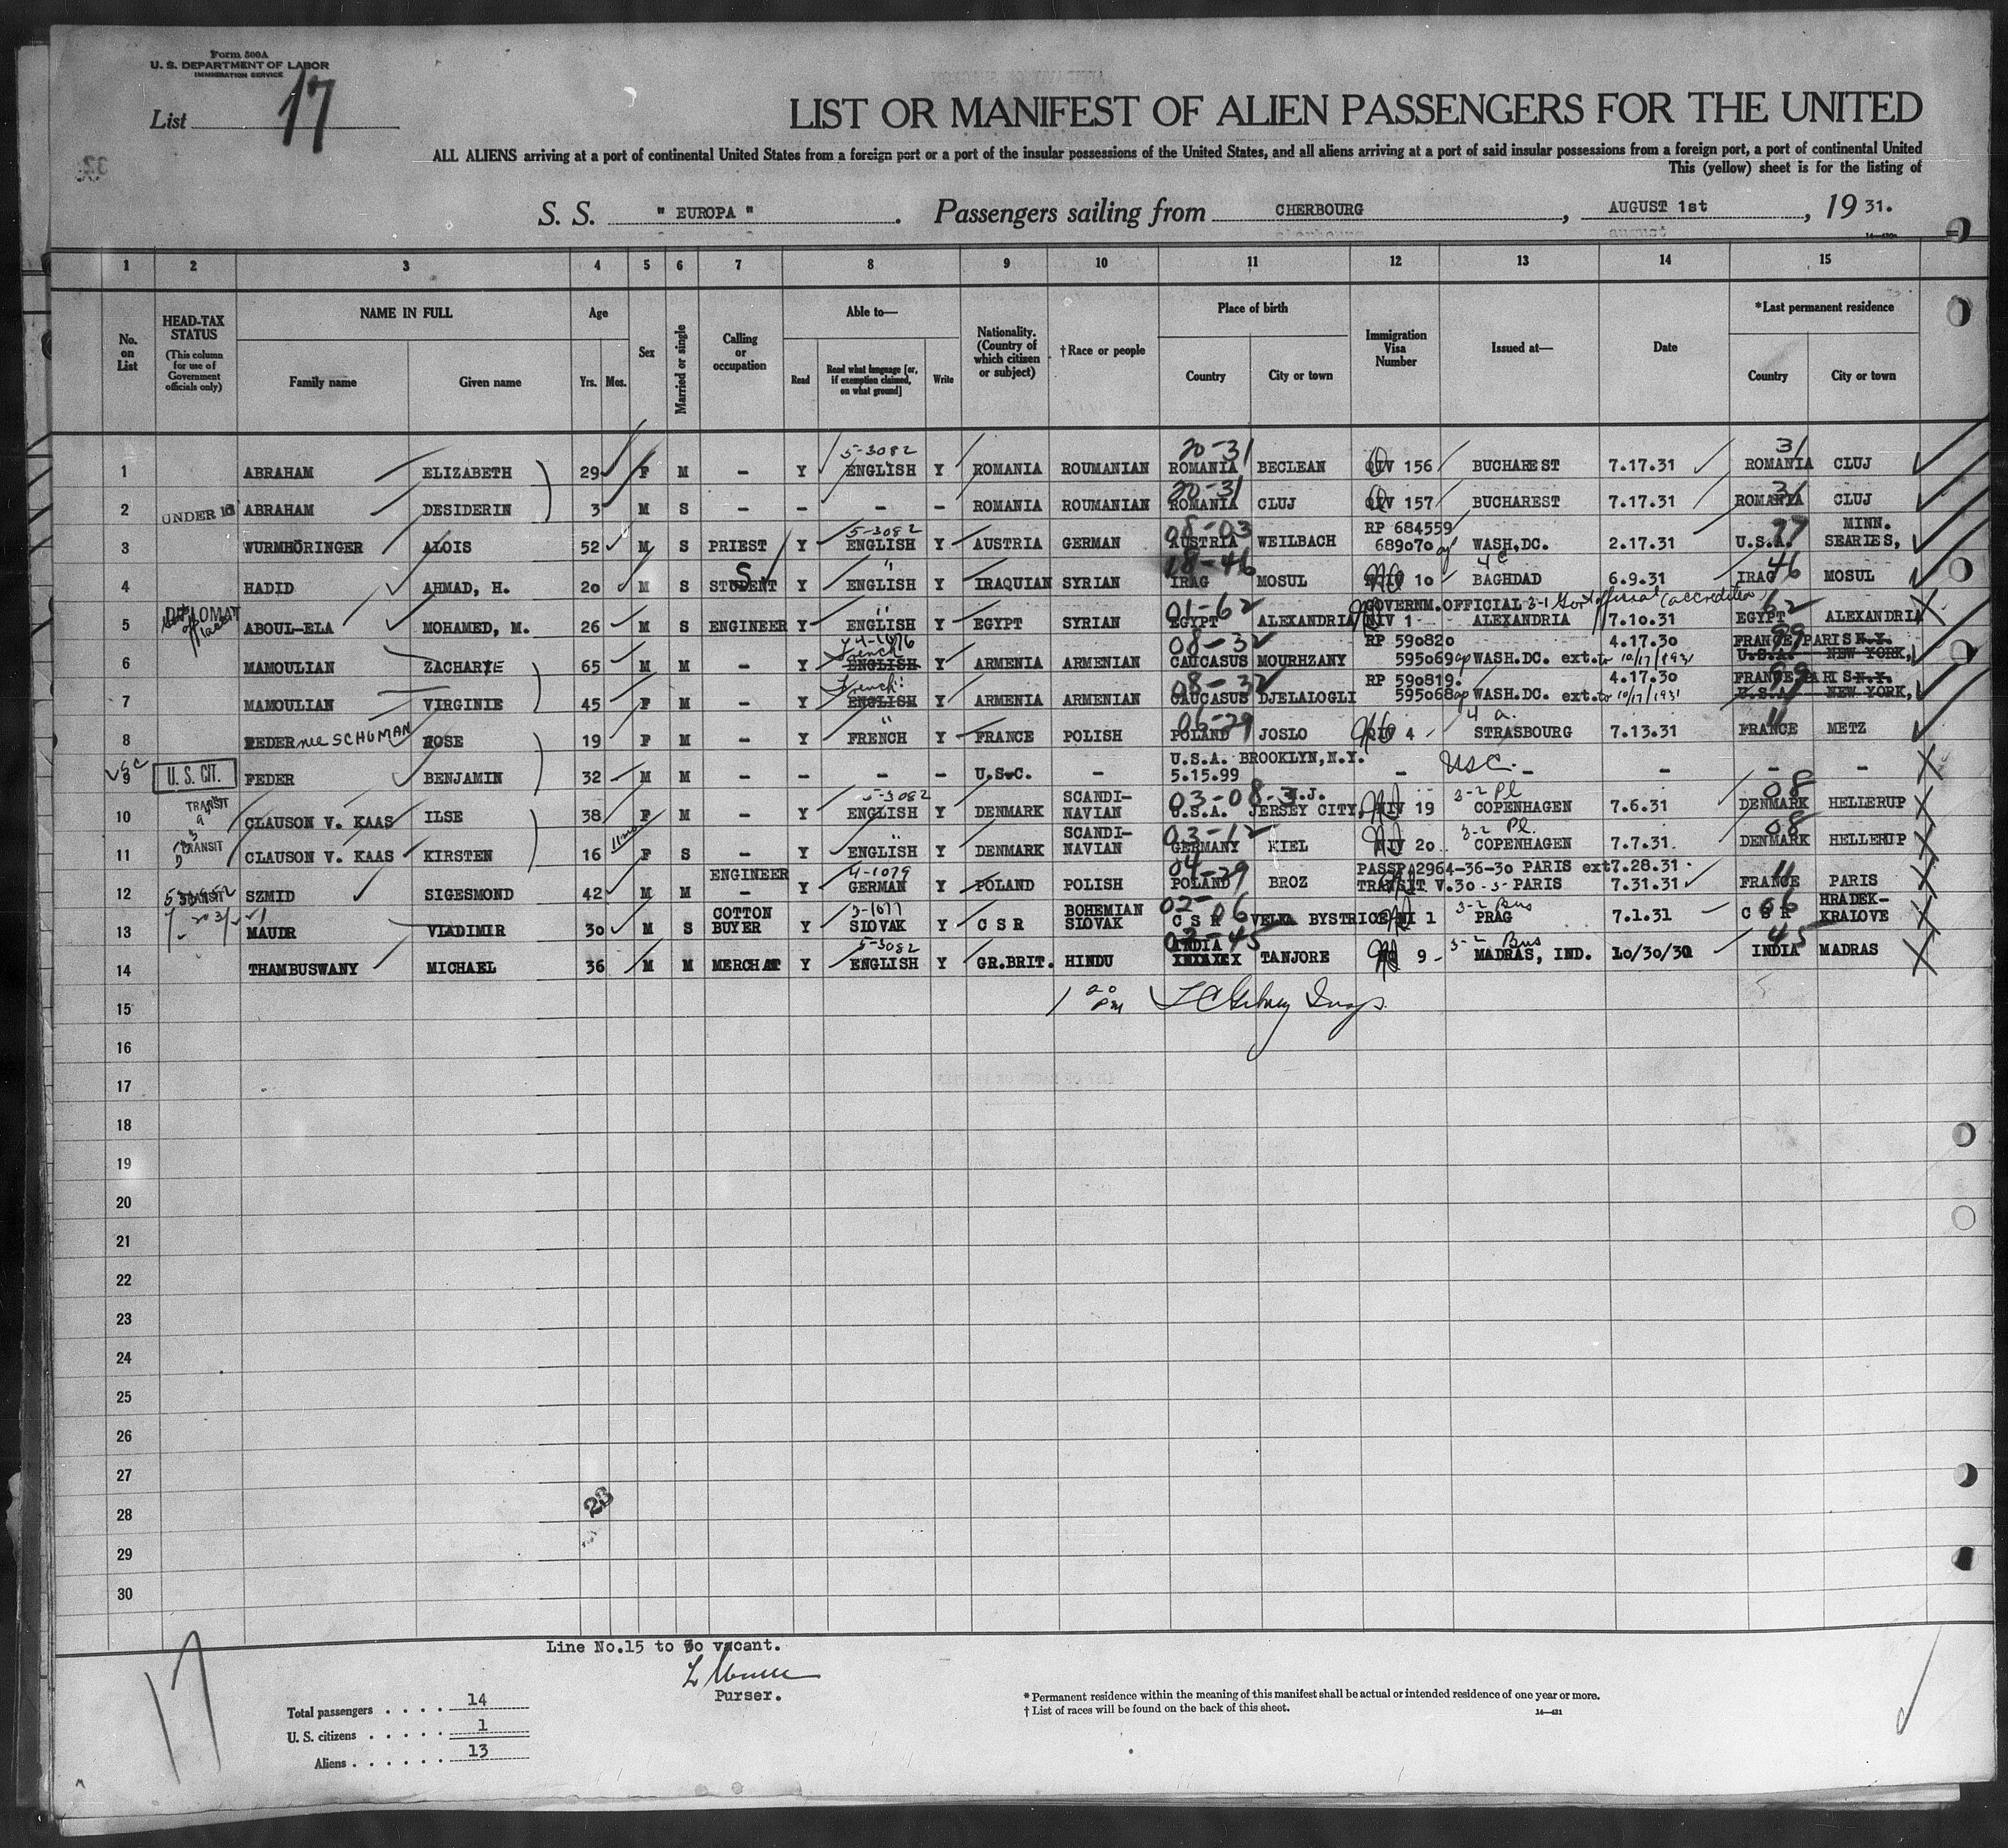 Form 500A
U. S. DEPARTMENT OF LABOR
IMMIGRATION SERVICE
List 17
LIST OR MANIFEST OF ALIEN PASSENGERS FOR THE UNITED
ALL ALIENS arriving at a port of continental United States from a foreign port or a port of the insular possessions of the United States, and all aliens arriving at a port of said insular possessions from a foreign port, a port of continental United
This (yellow) sheet is for the listing of
S. S. "EUROPA". Passengers sailing from CHERBOURG, AUGUST 1st, 19 31.
1 2 3 4 5 6 7 8 9 10 11 12 13 14 15
No. on List
HEAD-TAX STATUS (This column for use of Government officials only)
NAME IN FULL
Family name Given name
Age
Yrs. Mos.
Sex
Married or single
Calling or occupation
Able to—
Read Read what language [or, if exemption claimed, on what ground] Write
Nationality. (Country of which citizen or subject)
†Race or people
Place of birth
Country City or town
Immigration Visa Number
Issued at—
Date
*Last permanent residence
Country City or town
5-3082 20-31 31
1 ABRAHAM ELIZABETH 29 F M - Y ENGLISH Y ROMANIA ROUMANIAN ROMANIA BECLEAN QIV 156 BUCHAREST 7.17.31 ROMANIA CLUJ
20-31 31
2 UNDER 16 ABRAHAM DESIDERIN 3 M S - - - - ROMANIA ROUMANIAN ROMANIA CLUJ QIV 157 BUCHAREST 7.17.31 ROMANIA CLUJ
5-3082 08-03 RP 684559 77 MINN.
3 WURMHÖRINGER ALOIS 52 M S PRIEST Y ENGLISH Y AUSTRIA GERMAN AUSTRIA WEILBACH 689070 WASH,DC. 2.17.31 U.S.A. SEARIES,
S " 18-46 4c 46
4 HADID AHMAD, H. 20 M S STUDENT Y ENGLISH Y IRAQUIAN SYRIAN IRAG MOSUL NIV 10 BAGHDAD 6.9.31 IRAG MOSUL
DIPLOMAT " 01-62 GOVERNM.OFFICIAL 3-1 Govt official (accredited) 62
5 ABOUL-ELA MOHAMED, M. 26 M S ENGINEER Y ENGLISH Y EGYPT SYRIAN EGYPT ALEXANDRIA NIV 1 ALEXANDRIA 7.10.31 EGYPT ALEXANDRIA
French 08-32 RP 590820 4.17.30 FRANCE 99 PARIS N.Y.
6 MAMOULIAN ZACHARYE 65 M M - Y ENGLISH Y ARMENIA ARMENIAN CAUCASUS MOURHZANY 595069 WASH.DC. ext.to 10/17/1931 U.S.A. NEW YORK,
French 08-32 RP 590819. 4.17.30 FRANCE 99 PARIS N.Y.
7 MAMOULIAN VIRGINIE 45 F M - Y ENGLISH Y ARMENIA ARMENIAN CAUCASUS DJELALOGLI 595068 WASH.DC. ext.to 10/17/1931 U.S.A. NEW YORK,
" 06-29 4 a. 11
8 FEDER nee SCHUMAN ROSE 19 F M - Y FRENCH Y FRANCE POLISH POLAND JOSLO 4 STRASBOURG 7.13.31 FRANCE METZ
USC U.S.A. BROOKLYN,N.Y. USC.
9 U. S. CIT. FEDER BENJAMIN 32 M M - - - - U.S.C. - 5.15.99 - - - - -
TRANSIT 5-3082 SCANDI- 03-08-3 N.J. 3-2 Pl 08
10 CLAUSON V. KAAS ILSE 38 F M - Y ENGLISH Y DENMARK NAVIAN U.S.A. JERSEY CITY, NIV 19 COPENHAGEN 7.6.31 DENMARK HELLERUP
TRANSIT 11 mo " SCANDI- 03-12 3-2 Pl. 08
11 CLAUSON V. KAAS KIRSTEN 16 F S - Y ENGLISH Y DENMARK NAVIAN GERMANY KIEL NIV 20 COPENHAGEN 7.7.31. DENMARK HELLERUP
ENGINEER 4-1079 04-29 PASSPA2964-36-30 PARIS ext7.28.31 11
12 TRANSIT SZMID SIGESMOND 42 M M - Y GERMAN Y POLAND POLISH POLAND BROZ TRANSIT V.30 PARIS 7.31.31 FRANCE PARIS
COTTON 3-1077 BOHEMIAN 02-06 3-2 Bus 06 HRADEK-
13 MAUDR VLADIMIR 30 M S BUYER Y SIOVAK Y C S R SIOVAK C S R VELKA BYSTRICE NI 1 PRAG 7.1.31 C S R KRALOVE
5-3082 INDIA 45 3-2 Bus 45
14 THAMBUSWANY MICHAEL 36 M M MERCHAT Y ENGLISH Y GR.BRIT. HINDU TANJORE 9 MADRAS, IND. 10/30/30 INDIA MADRAS
15 1 20 PM
16
17
18
19
20
21
22
23
24
25
26
27
28 23
29
30
Line No.15 to 30 vacant.
Purser.
17
Total passengers . . . . 14
U. S. citizens . . . . . 1
Aliens . . . . . . 13
* Permanent residence within the meaning of this manifest shall be actual or intended residence of one year or more.
† List of races will be found on the back of this sheet.
14—421